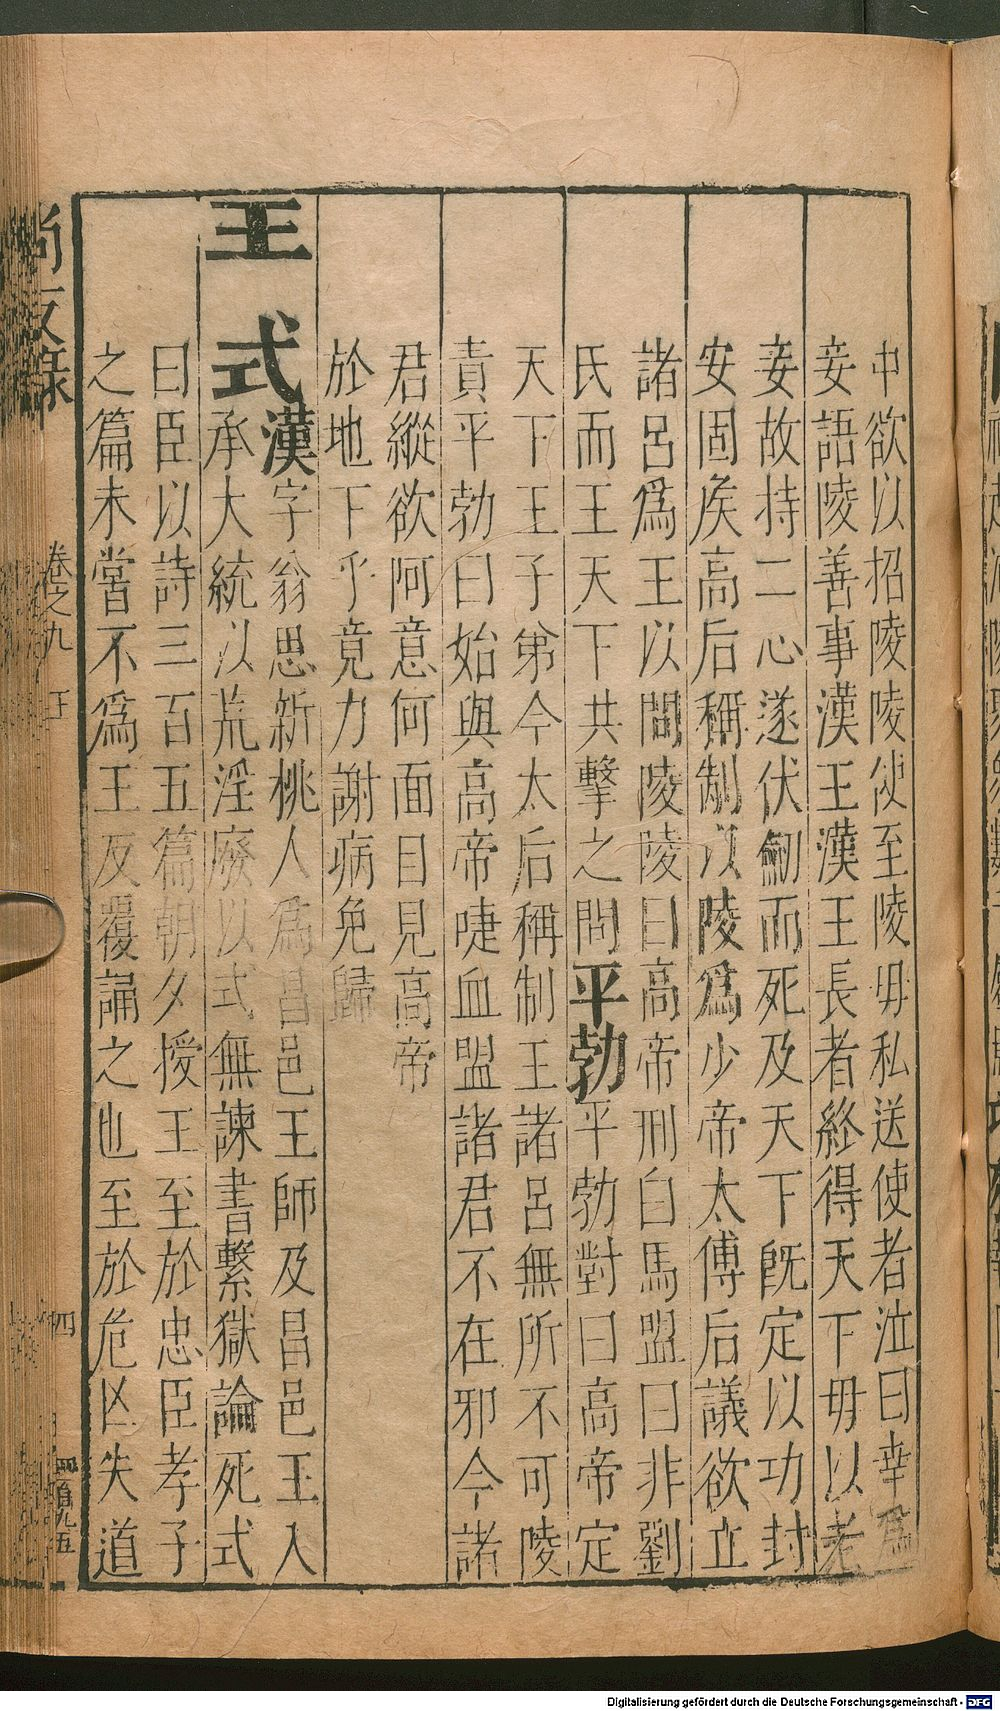 中欲以招陵陵使至陵毋私送使者泣曰幸爲
妾語陵善事漢王漢王長者終得天下毋以老
妾故持二心遂伏劒而死及天下旣定以功封
安國矦高后稱制以陵爲少帝太傅后議欲立
諸呂爲王以問陵陵曰高帝刑白馬盟曰非劉
氏而王天下共擊之問平勃平勃對曰高帝定
天下王子弟今太后稱制王諸呂無所不可陵
責平勃曰始與高帝啑血盟諸君不在邪今諸
君縱欲阿意何面目見高帝
於地下乎竟力謝病免歸
王式漢字翁思新桃人爲昌邑王師及昌邑王入
承大統以荒淫廢以式無諫書繫獄論死式
曰臣以詩三百五篇朝夕授王至於忠臣孝子
之篇未嘗不爲王反覆誦之也至於危凶失道
尚友錄
卷之九
四
四百九五
Digitalisierung gefördert durch die Deutsche Forschungsgemeinschaft - DFG